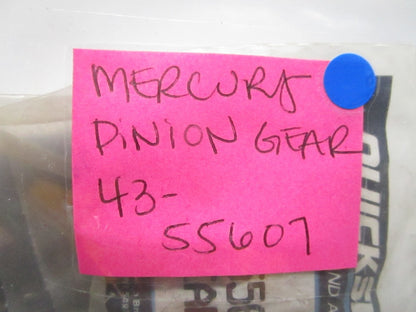 MERCURY
PINION GEAR
43-
55607
QUICKS